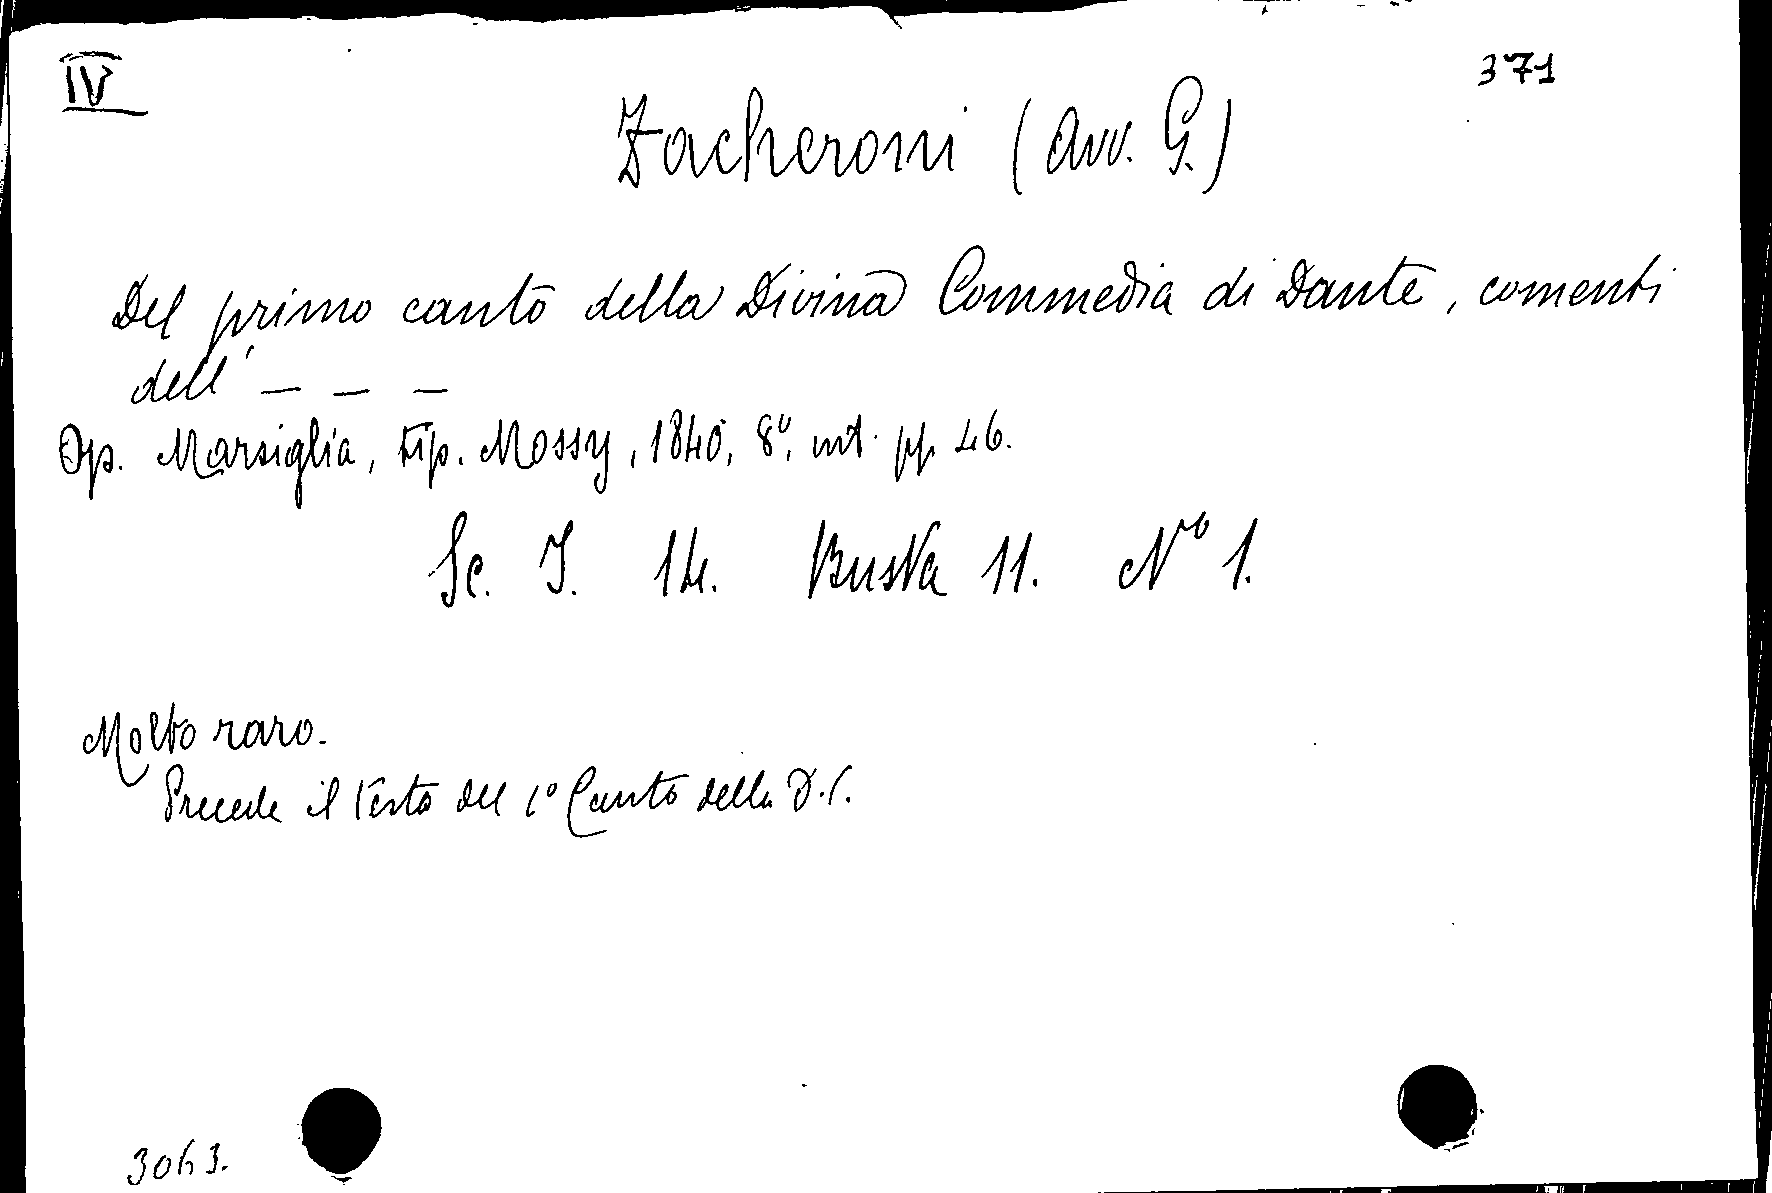 IV
371
Zacheroni (Avv. G.)
Del primo canto della Divina Commedia di Dante, comenti
dell' _ _ _
Op. Marsiglia, tip. Mossy, 1840, 8º, int. pp. 46.
Sc. I. 14. Busta 11. Nº 1.
Molto raro.
Precede il testo del 1º Canto della D.C.
3063.